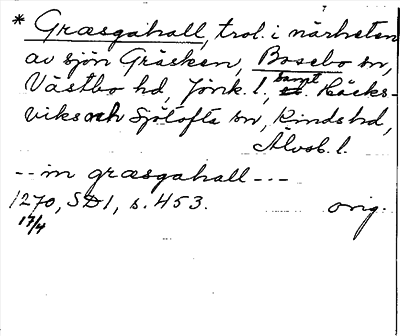 * Græsgahall, trol. i närheten
av sjön Gräsken, Bosebo sn,
Västbo hd, Jönk. l, samt Håcks-
vik och Sjötofta sn, Kinds hd,
Älvsb. l.
-- in græsgahall ---
1270, SD1, s. 453. orig.
17/4